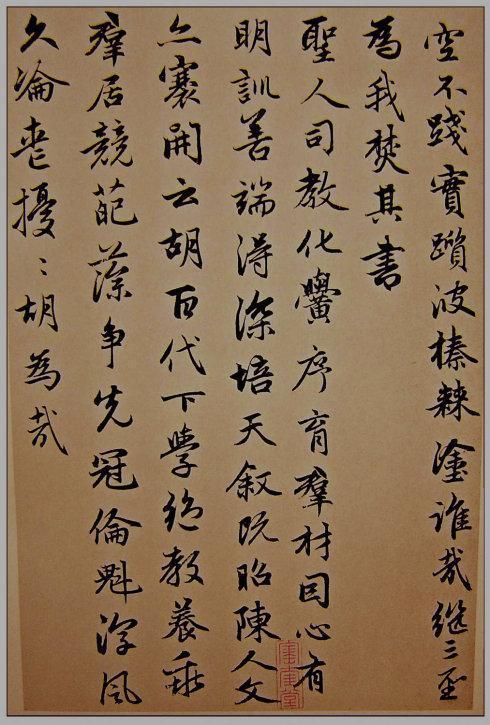 空不踐實躓彼榛棘塗誰哉繼三聖
為我焚其書
聖人司教化黌序育羣材因心有
明訓善端得深培天敘既昭陳人文
亦褰開云胡百代下學絕教養乖
羣居競葩藻爭先冠倫魁淳風
久淪喪擾〻胡為哉